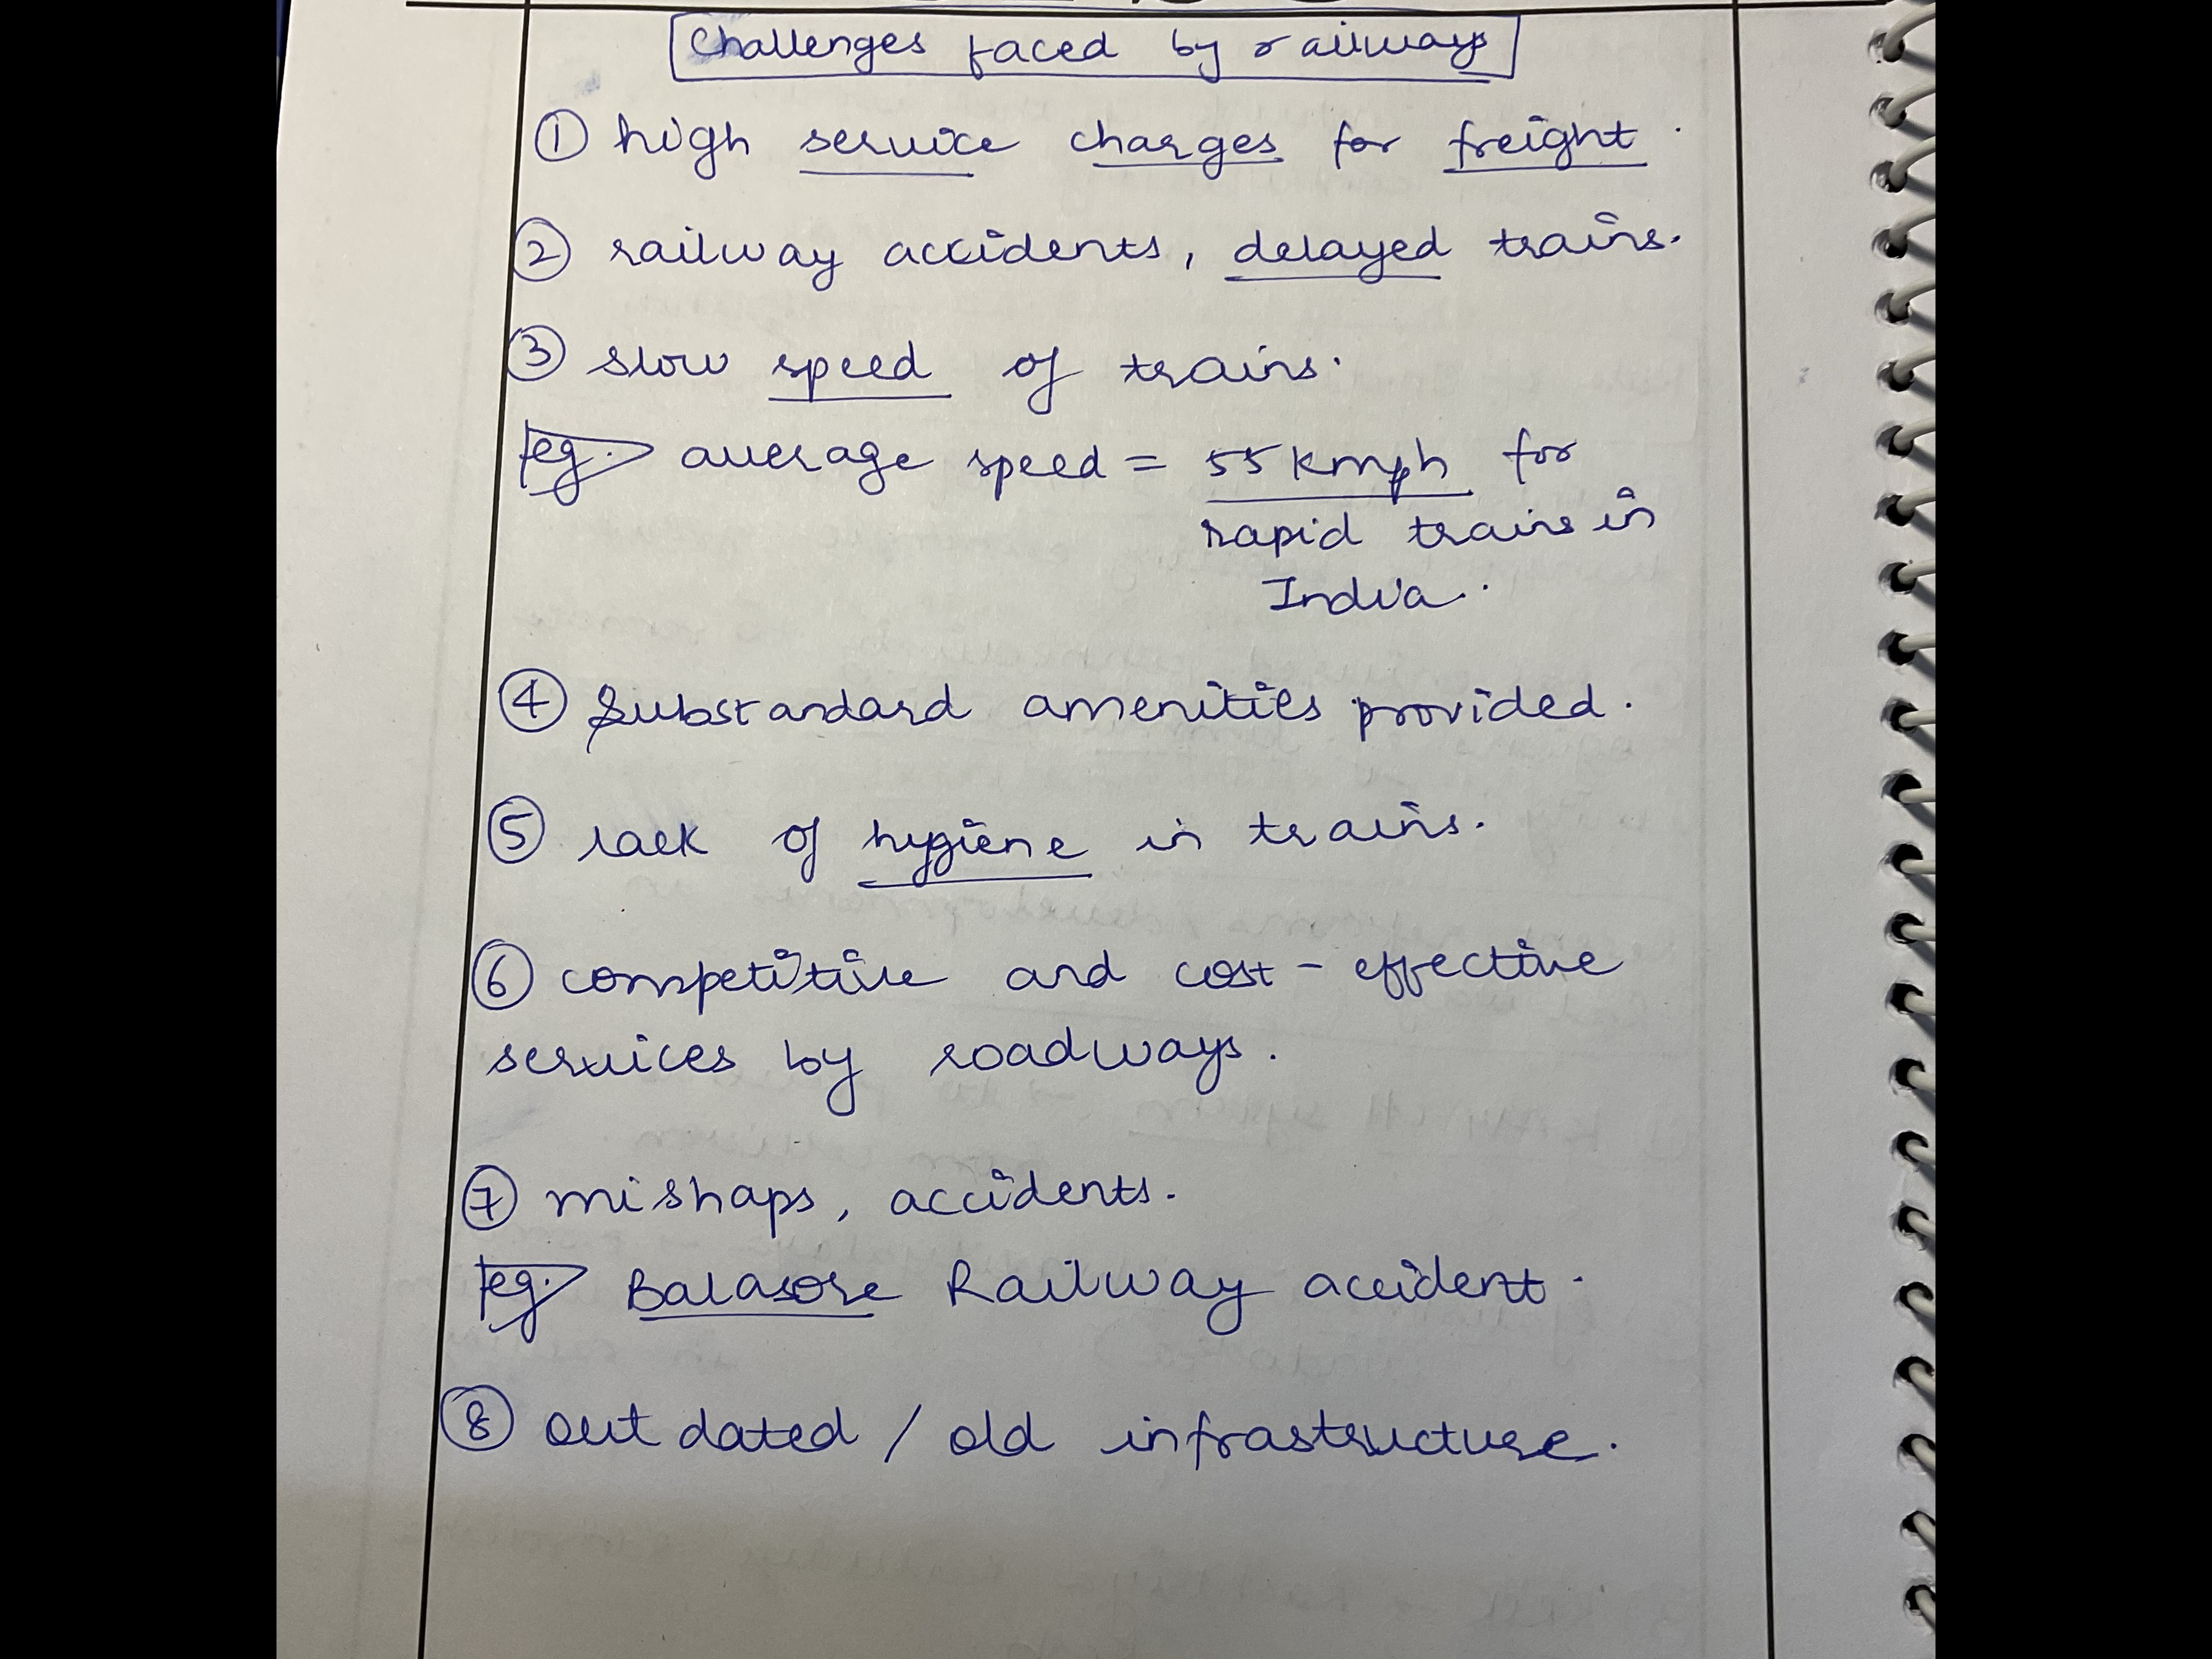 Challenges faced by railways
① high service charges for freight.
② railway accidents, delayed trains.
③ slow speed of trains.
eg. average speed = 55 kmph for
rapid trains in
India.
④ Substandard amenities provided.
⑤ lack of hygiene in trains.
⑥ competitive and cost-effective
services by roadways.
⑦ mishaps, accidents.
eg. Balasore Railway accident.
⑧ out dated / old infrastructure.